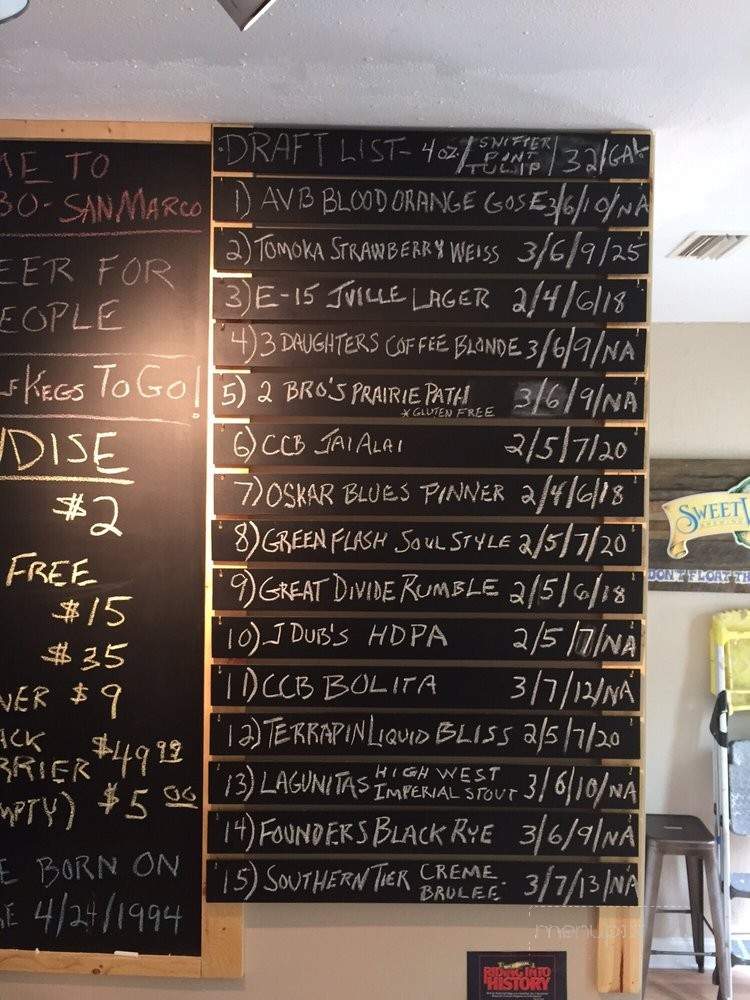 ME TO
BO - SAN MARCO
EER FOR
EOPLE
KEGS TO GO!
DISE
$2
FREE
$15
$35
NER $9
ACK $49.99
RRIER
MPTY) $5.00
E BORN ON
E 4/24/1994
DRAFT LIST - 4 OZ. / SNIFTER PINT TULIP / 32 / GAL
1) AVB BLOOD ORANGE GOSE 3/6/10/NA
2) TOMOKA STRAWBERRY WEISS 3/6/9/25
3) E-15 JVILLE LAGER 2/4/6/18
4) 3 DAUGHTERS COFFEE BLONDE 3/6/9/NA
5) 2 BRO'S PRAIRIE PATH 3/6/9/NA
*GLUTEN FREE
6) CCB JAI ALAI 2/5/7/20
7) OSKAR BLUES PINNER 2/4/6/18
8) GREEN FLASH SOUL STYLE 2/5/7/20
9) GREAT DIVIDE RUMBLE 2/5/6/18
10) J DUB'S HDPA 2/5/7/NA
11) CCB BOLITA 3/7/12/NA
12) TERRAPIN LIQUID BLISS 2/5/7/20
13) LAGUNITAS HIGH WEST IMPERIAL STOUT 3/6/10/NA
14) FOUNDERS BLACK RYE 3/6/9/NA
15) SOUTHERN TIER CREME BRULEE 3/7/13/NA
SWEET
DON'T FLOAT TH
RIDING INTO
HISTORY
menupix